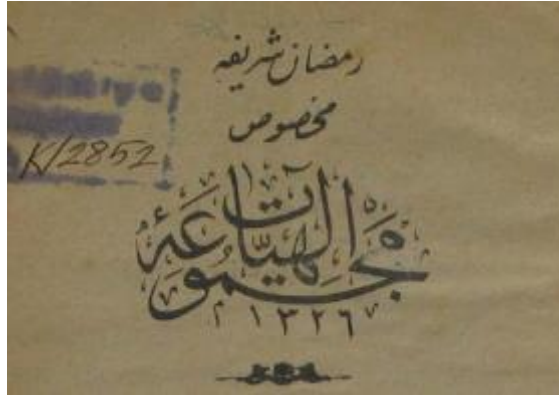 رمضان شريفه
مخصوص
K/2852
مجموعة الهيات
١٣٢٦